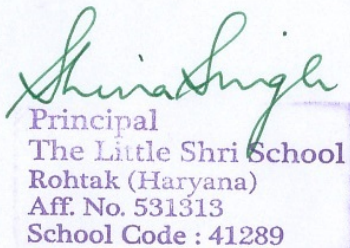 Principal
The Little Shri School
Rohtak (Haryana)
Aff. No. 531313
School Code : 41289